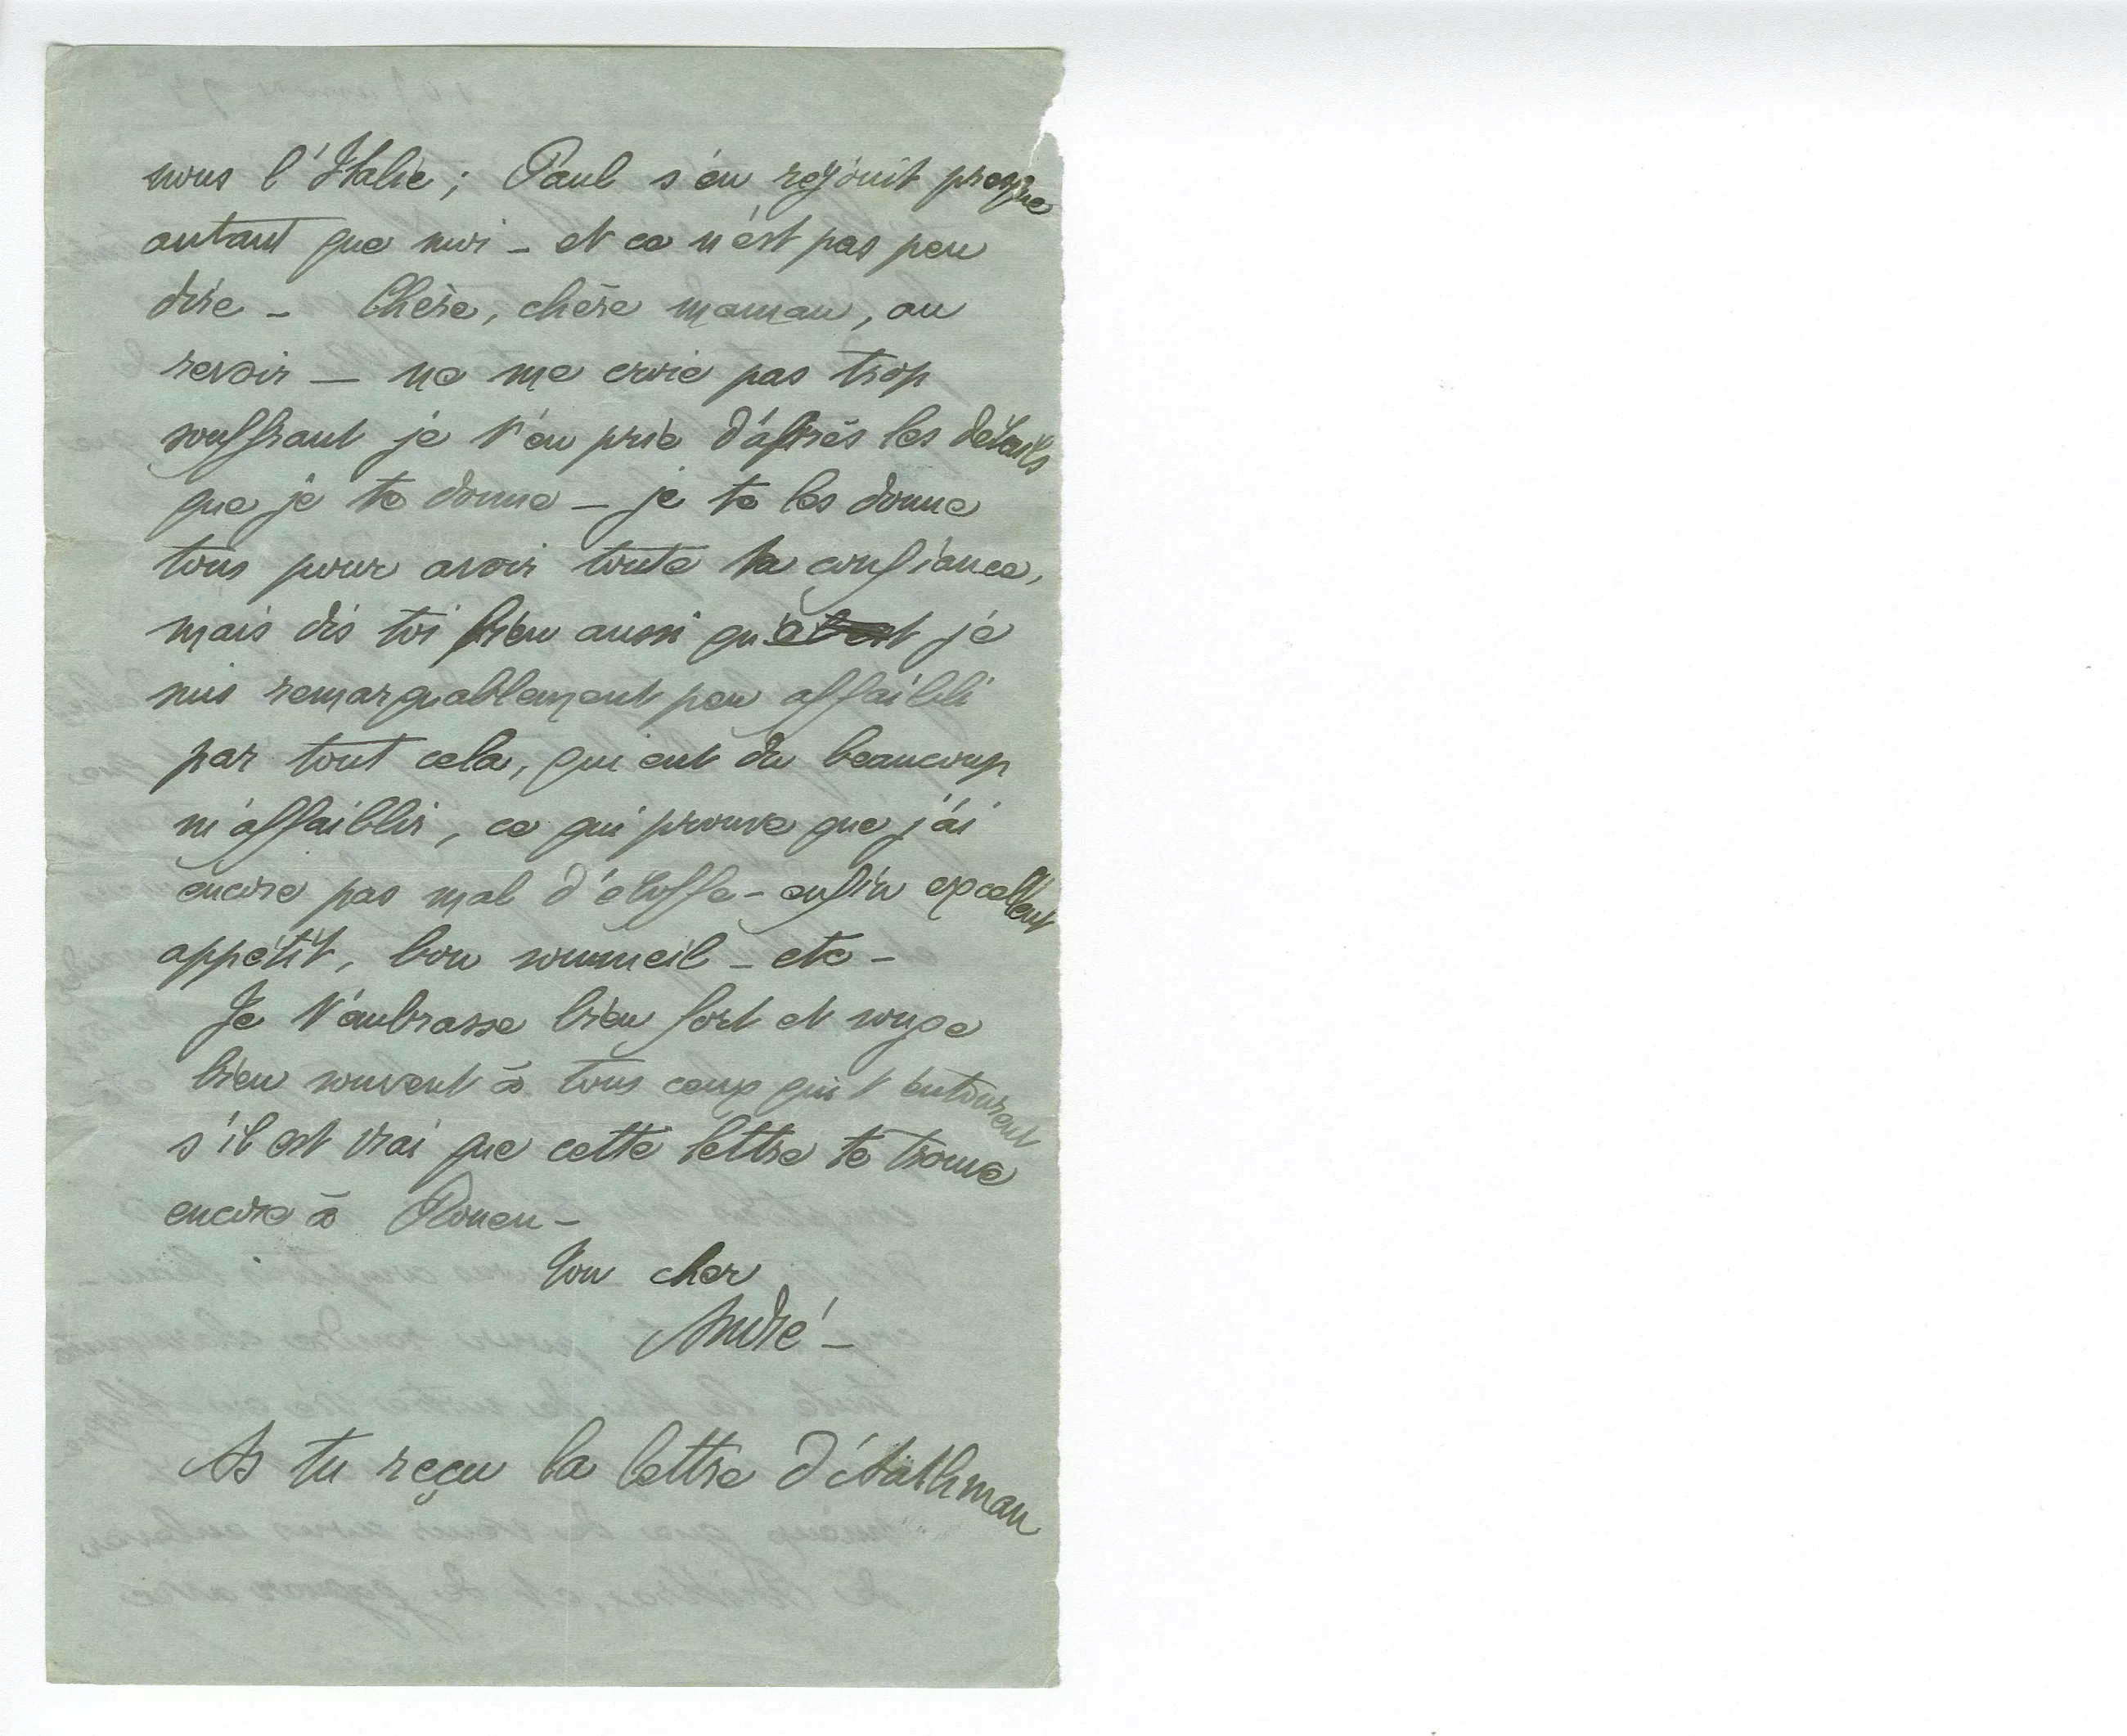 nous l'Italie ; Paul s'en réjouit presque
autant que moi – et ce n'est pas peu
dire – Chère, chère maman, au
revoir – ne me croie pas trop
souffrant je t'en prie d'après les détails
que je te donne – je te les donne
tous pour avoir toute ta confiance,
mais dis toi bien aussi que je
suis remarquablement peu affaibli
par tout cela, qui eut du beaucoup
m'affaiblir, ce qui prouve que j'ai
encore pas mal d'étoffe – enfin excellent
appétit, bon sommeil – etc –
Je t'embrasse bien fort et songe
bien souvent à tous ceux qui t'entourent
s'il est vrai que cette lettre te trouve
encore à Rouen –
Ton cher
André –
As tu reçu la lettre d'Athman